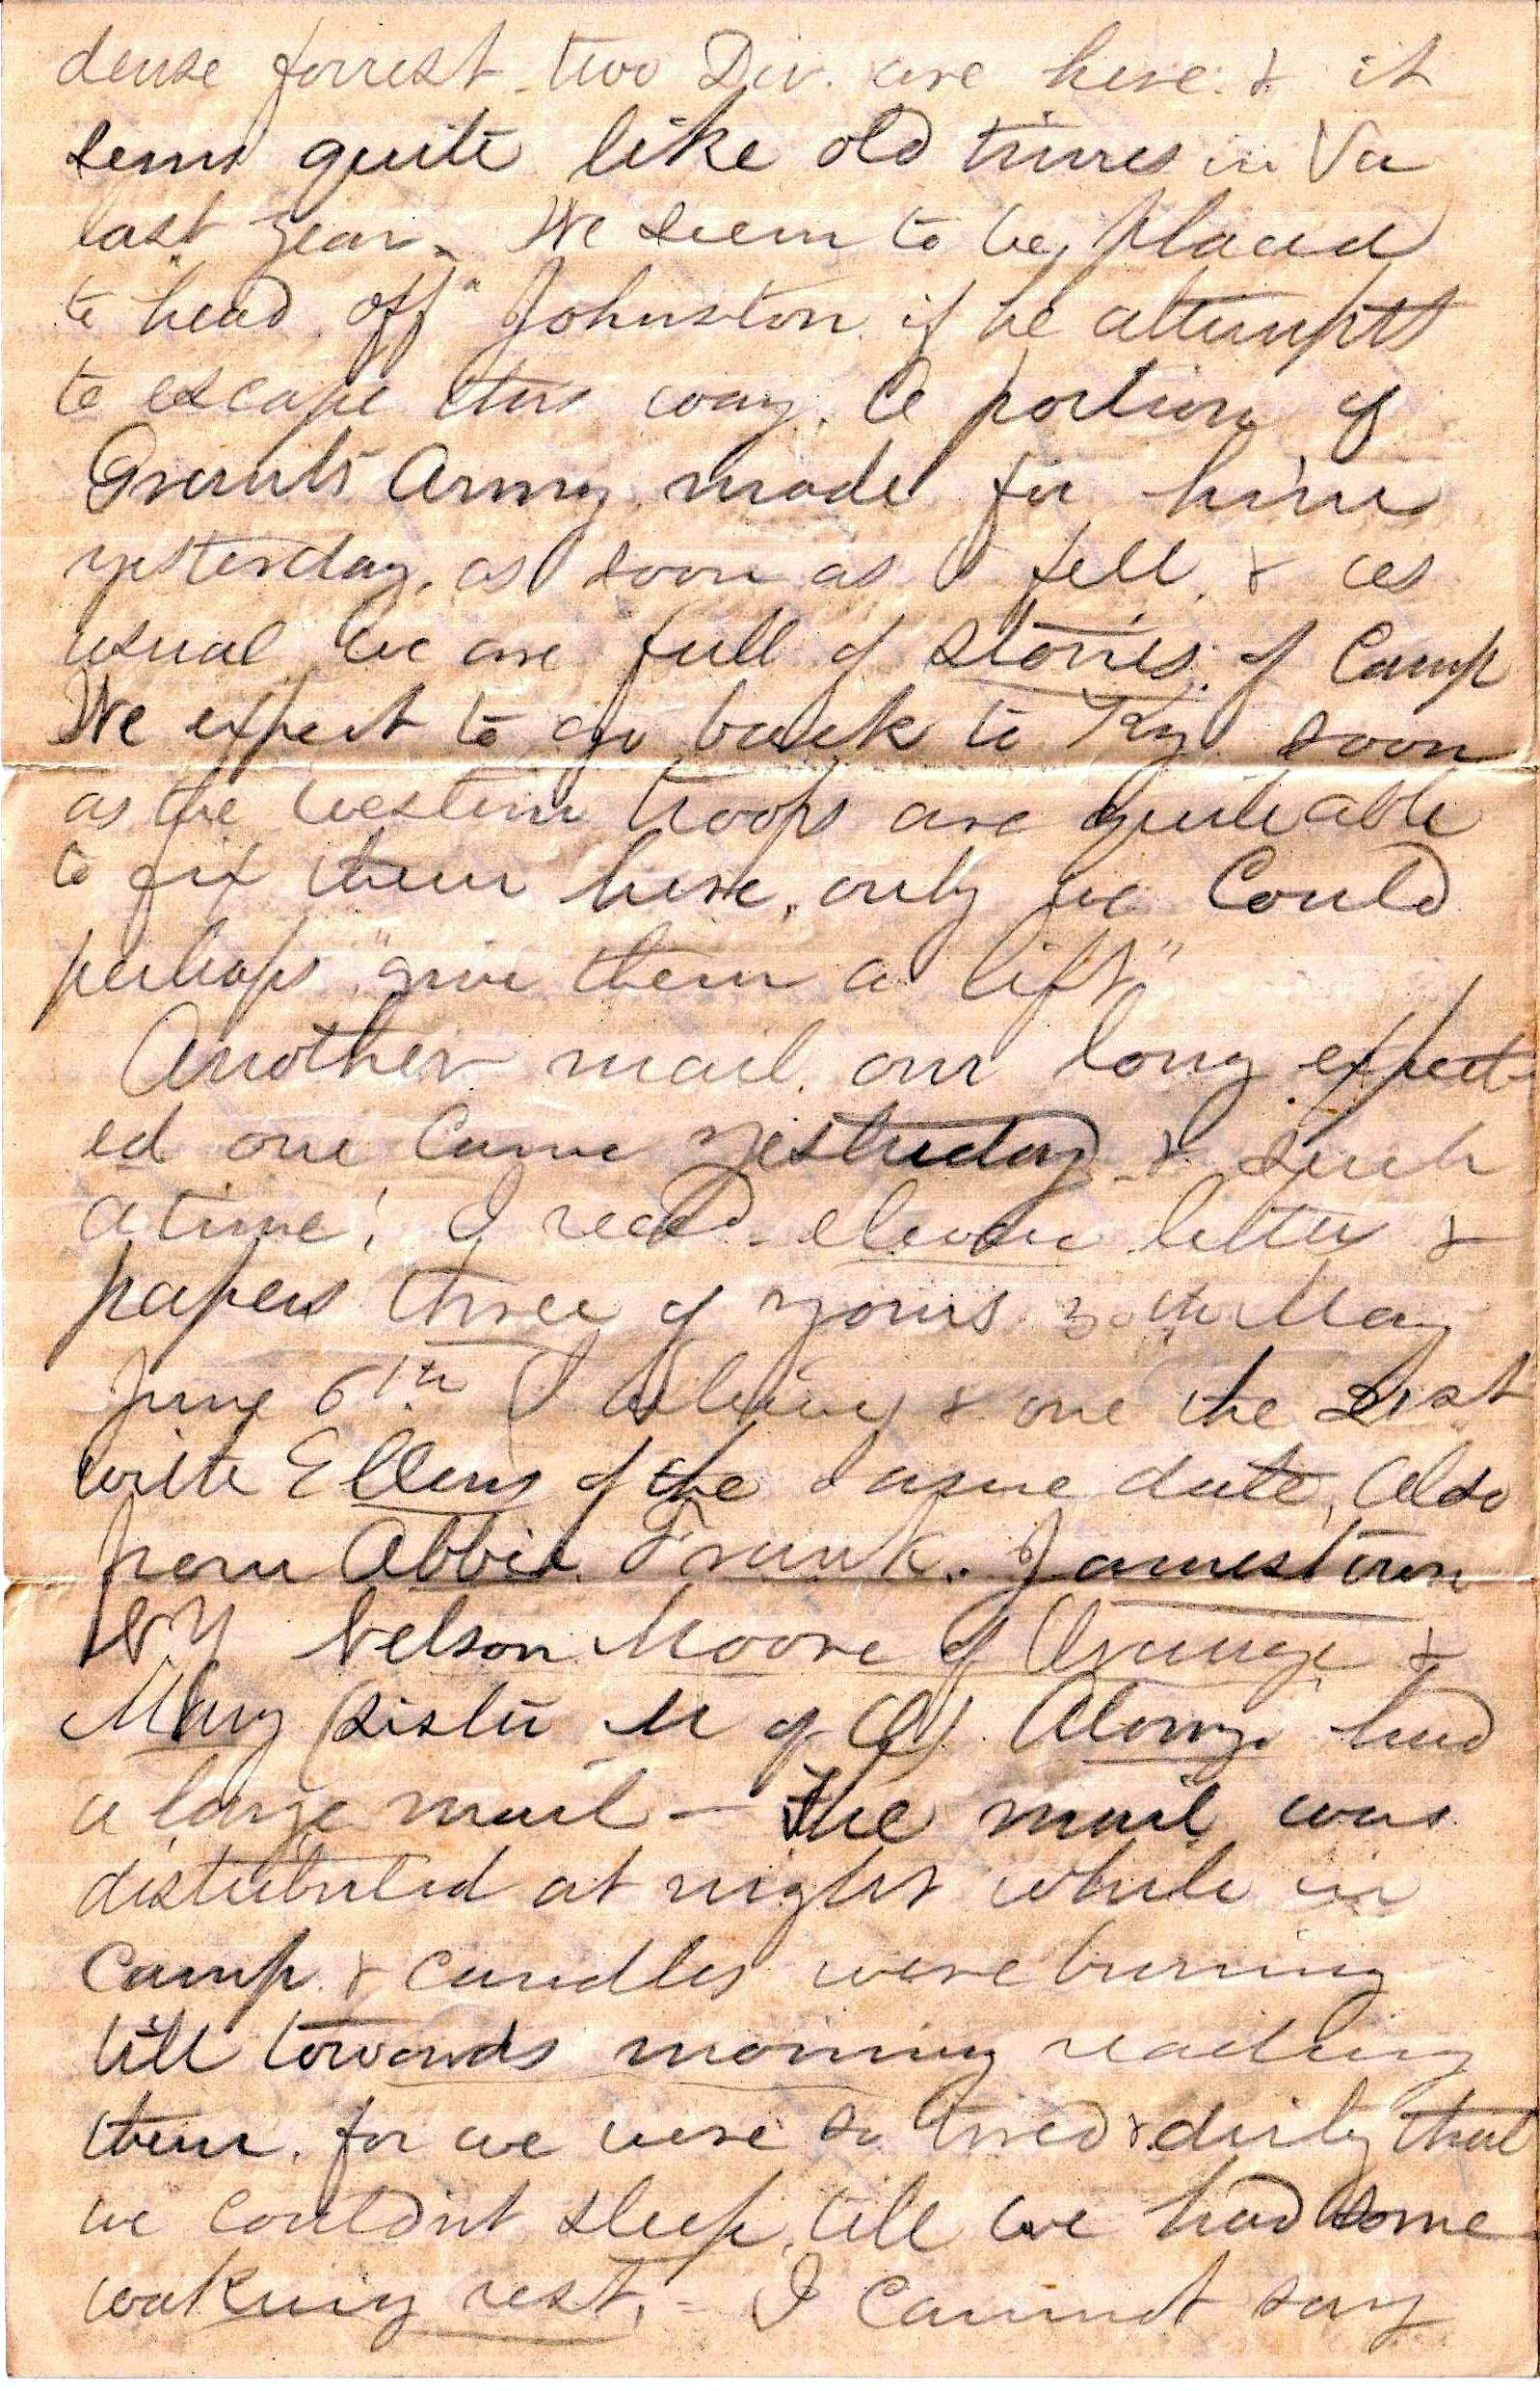 dense forrest two Div. are here. & it
sems quite like old times in Va
last year. We seem to be placed
to "head off" Johnston if he attempts
to escape this way. A portion of
Grants Army made for him
yesterday. as soon as V fell. & as
usual we are full of stories. of Camp
We expect to go back to Ky soon
as the western troops are quite able
to fix them here. only we Could
perhaps "give them a lift"
Another mail. our long expect-
ed one Came yesterday - & such
a time! I recd - eleven letters &
papers three of yours. 30th May
June 6th (I believe) & one the 21st
with Ellens of the same date. Also
from Abbie. Frank. Jamestown
NY Nelson Moore of Orange &
Mary (sister M of O). Alony. had
a large mail - The mail was
distributed at night while in
Camp. & candles were burning
till towards morning reading
them. for we were so tired & dirty that
we couldnt sleep. till we had some
waking rest. - I cannot say